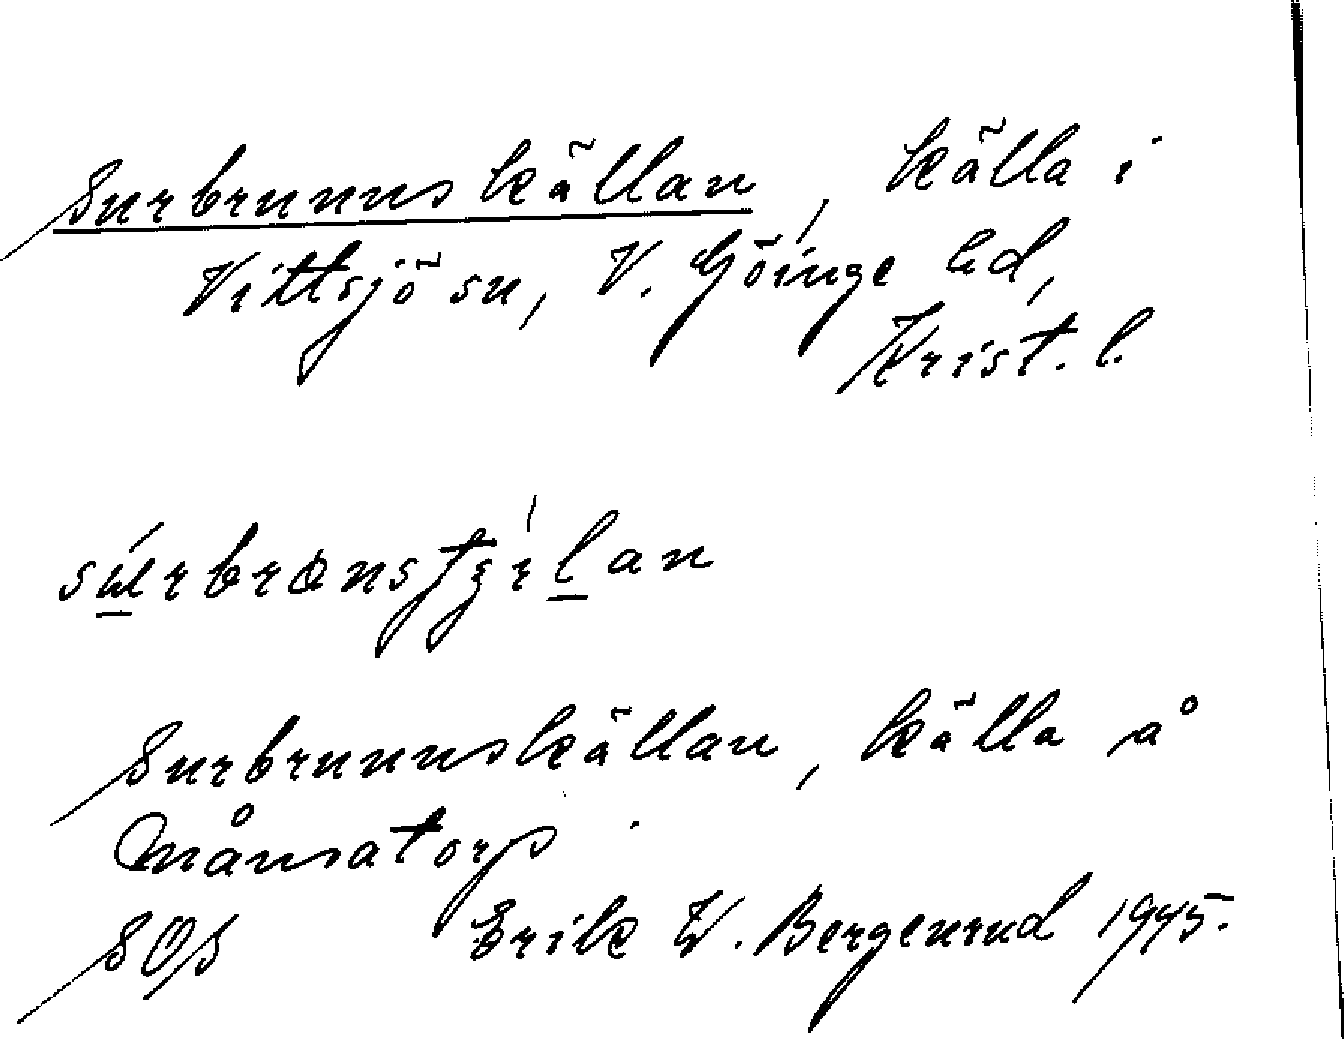 Surbrunnskällan, källa i
Vittsjö sn, V. Göinge hd,
Krist. l.
Surbrunnskällan, källa å
Månsatorp
SOS Erik W. Bergenrud 1945.